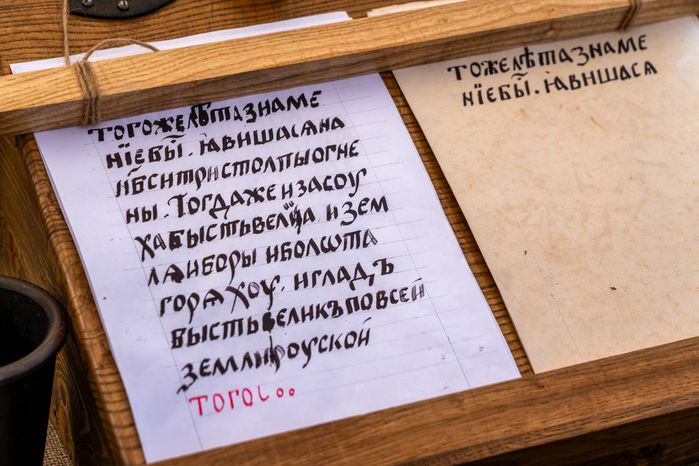 ТОГОЖЕЛѢТАЗНАМЕ
НЇЕБЫ̑. ꙖВИШАСѦНА
НБСИТРИСТОЛПЫОГНЕ
НЫ. ТОГДАЖЕИЗАСОУ
ХАБЫСТЬВЕЛЇѦ. ИЗЕМ
ЛѦИБОРЫИБОЛѠТА
ГОРѦХОУ. ИГЛАДЪ
БЫСТЬВЕЛИКЪПОВСЕЙ
ЗЕМЛИРОУСКОЙ
ТОГО...
ТОЖЕЛѢТАЗНАМЕ
НЇЕБЫ̑. ꙖВИШАСА